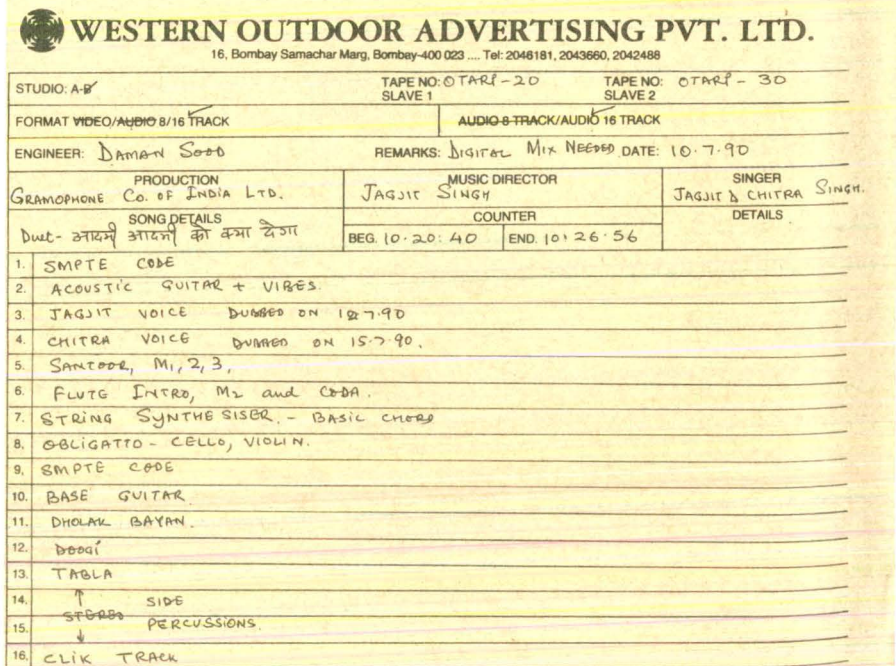 WESTERN OUTDOOR ADVERTISING PVT. LTD.
16, Bombay Samachar Marg, Bombay-400 023 .... Tel: 2046181, 2043660, 2042488
STUDIO: A-B TAPE NO: OTARI-20 TAPE NO: OTARI-30
SLAVE 1 SLAVE 2
FORMAT VIDEO/AUDIO 8/16 TRACK AUDIO 8 TRACK/AUDIO 16 TRACK
ENGINEER: DAMAN SOOD REMARKS: DIGITAL MIX NEEDED DATE: 10.7.90
PRODUCTION MUSIC DIRECTOR SINGER
GRAMOPHONE CO. OF INDIA LTD. JAGJIT SINGH JAGJIT & CHITRA SINGH.
SONG DETAILS COUNTER DETAILS
Duet- आदमी आदमी को क्या देगा BEG. 10.20:40 END. 10:26.56
1. SMPTE CODE
2. ACOUSTIC GUITAR + VIBES.
3. JAGJIT VOICE DUBBED ON
4. CHITRA VOICE DUBBED ON 15.7.90.
5. SANTOOR, M1, 2, 3,
6. FLUTE INTRO, M2 and CODA.
7. STRING SYNTHESISER. - BASIC CHORD
8. OBLIGATTO - CELLO, VIOLIN.
9. SMPTE CODE
10. BASE GUITAR
11. DHOLAK BAYAN.
12.
13. TABLA
14. ↑ SIDE
STEREO
15. ↓ PERCUSSIONS.
16. CLIK TRACK